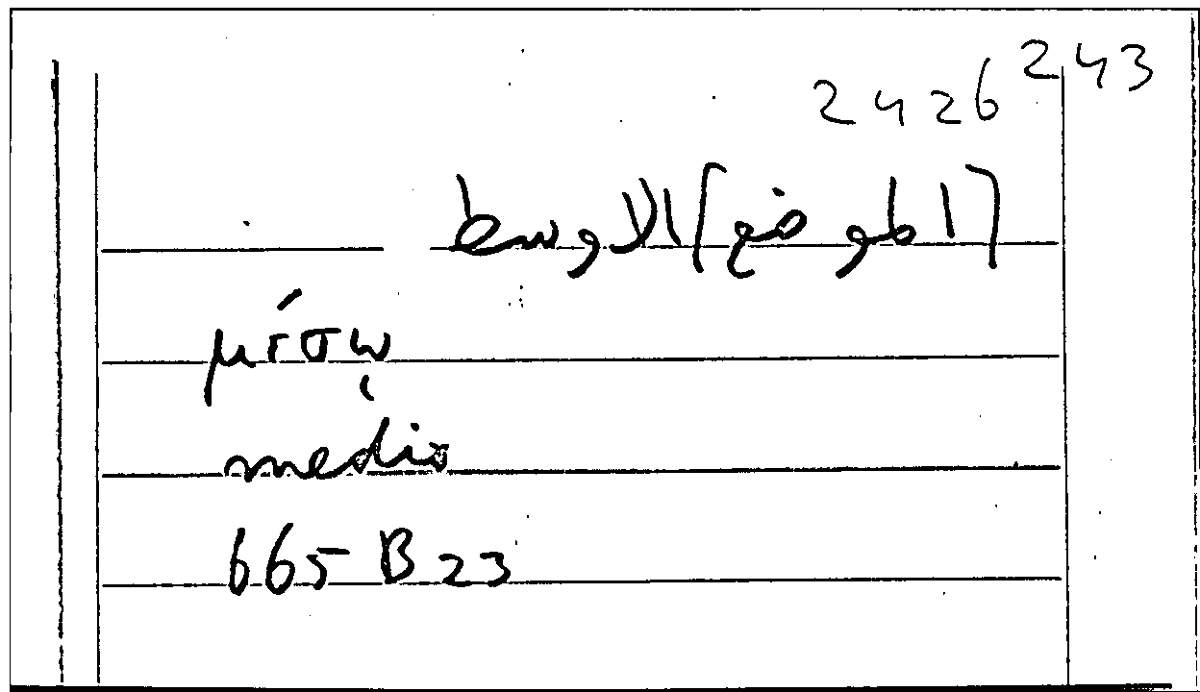 243
2426
(الموضع) الاوسط
μέσῳ
medio
665 B 23